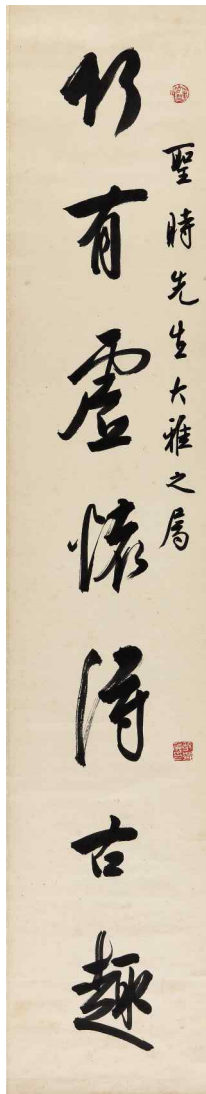 聖時先生大雅之屬
竹有虛懷得古趣